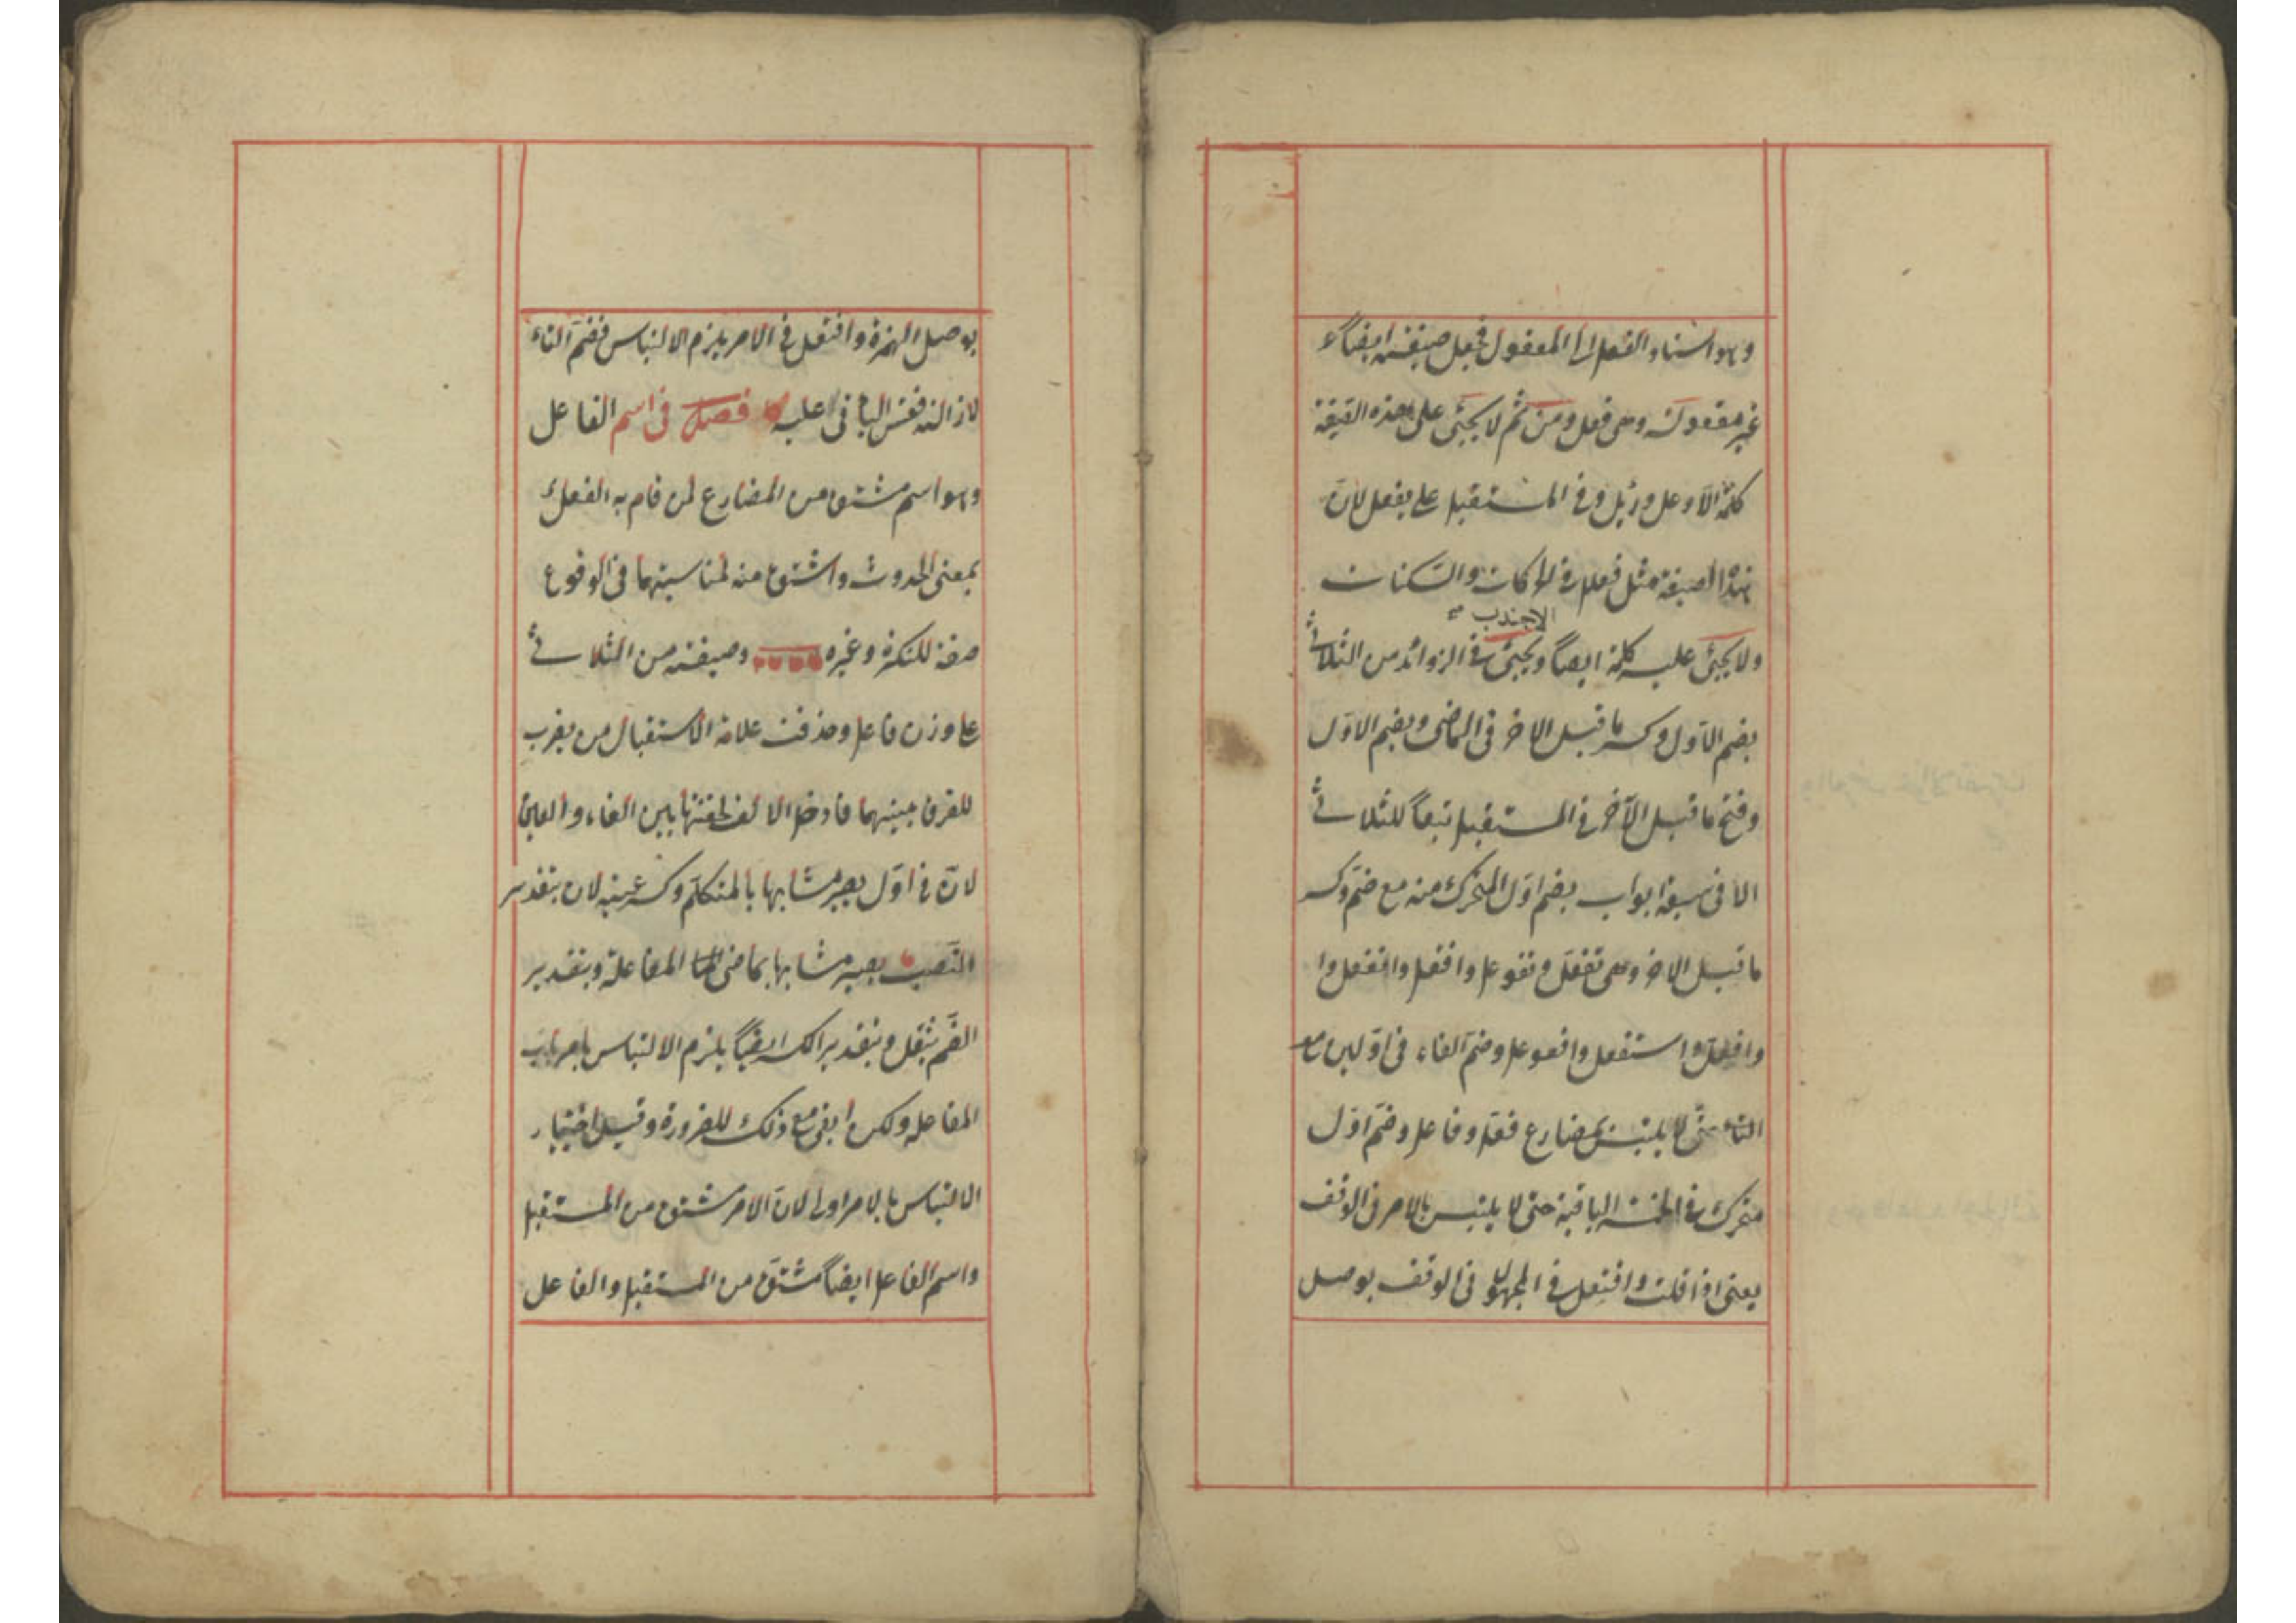 وهو اسناد الفعل الى المفعول فجعل صيغته ايضاً
غير معقولة وهى فعل ومن ثم لا يجئ على هذه الصيغة
كلمة الا وعل ودئل وفى المستقبل على يفعل لان
هذا الصيغة مثل فعلل فى الحركات والسكنات
الا جندب صح
ولا يجئ عليه كلمة ايضاً ويجئ فى الزوائد من الثلاثى
بضم الاول وكسر ما قبل الاخر فى الماضى وبضم الاول
وفتح ما قبل الآخر فى المستقبل تبعاً للثلاثى
الا فى سبعة ابواب بضم اول المتحرك منه مع ضم وكسر
ما قبل الاخر وهى تفعل وتفوعل وافتعل وانفعل وا
وافعلل واستفعل وافعوعل وضم الفاء فى اولين مع
التاء حتى لا يلتبس بمضارع فعل وفاعل وضم اول
متحرك فى الخمسة الباقية حتى لا يلتبس بالامر فى الوقف
يعنى اذا قلت وافتعل فى المجهول فى الوقف بوصل
بوصل الهمزة وافتعل فى الامر يلزم الالتباس فضم التاء
لازالته فقس الباقى عليه فصل فى اسم الفاعل
وهو اسم مشتق من المضارع لمن قام به الفعل
بمعنى الحدوث واشتق منه لمناسبتهما فى الوقوع
صفة للنكرة وغيره وصيغته من الثلاثى
على وزن فاعل وحذفت علامة الاستقبال من يضرب
للفرق بينهما فادخل الالف لخفتها بين الفاء والعين
لان فى اول يصير مشابها بالمتكلم وكسر عينه لان بتقدير
النصب يصير مشابها بماضى المفاعلة وبتقدير
الضم يثقل وبتقدير الكسر ايضاً يلزم الالتباس بامر باب
المفاعلة ولكن ابقى مع ذلك للضرورة وقيل اختيار
الالتباس بالامر اولى لان الامر مشتق من المستقبل
واسم الفاعل ايضاً مشتق من المستقبل والفاعل